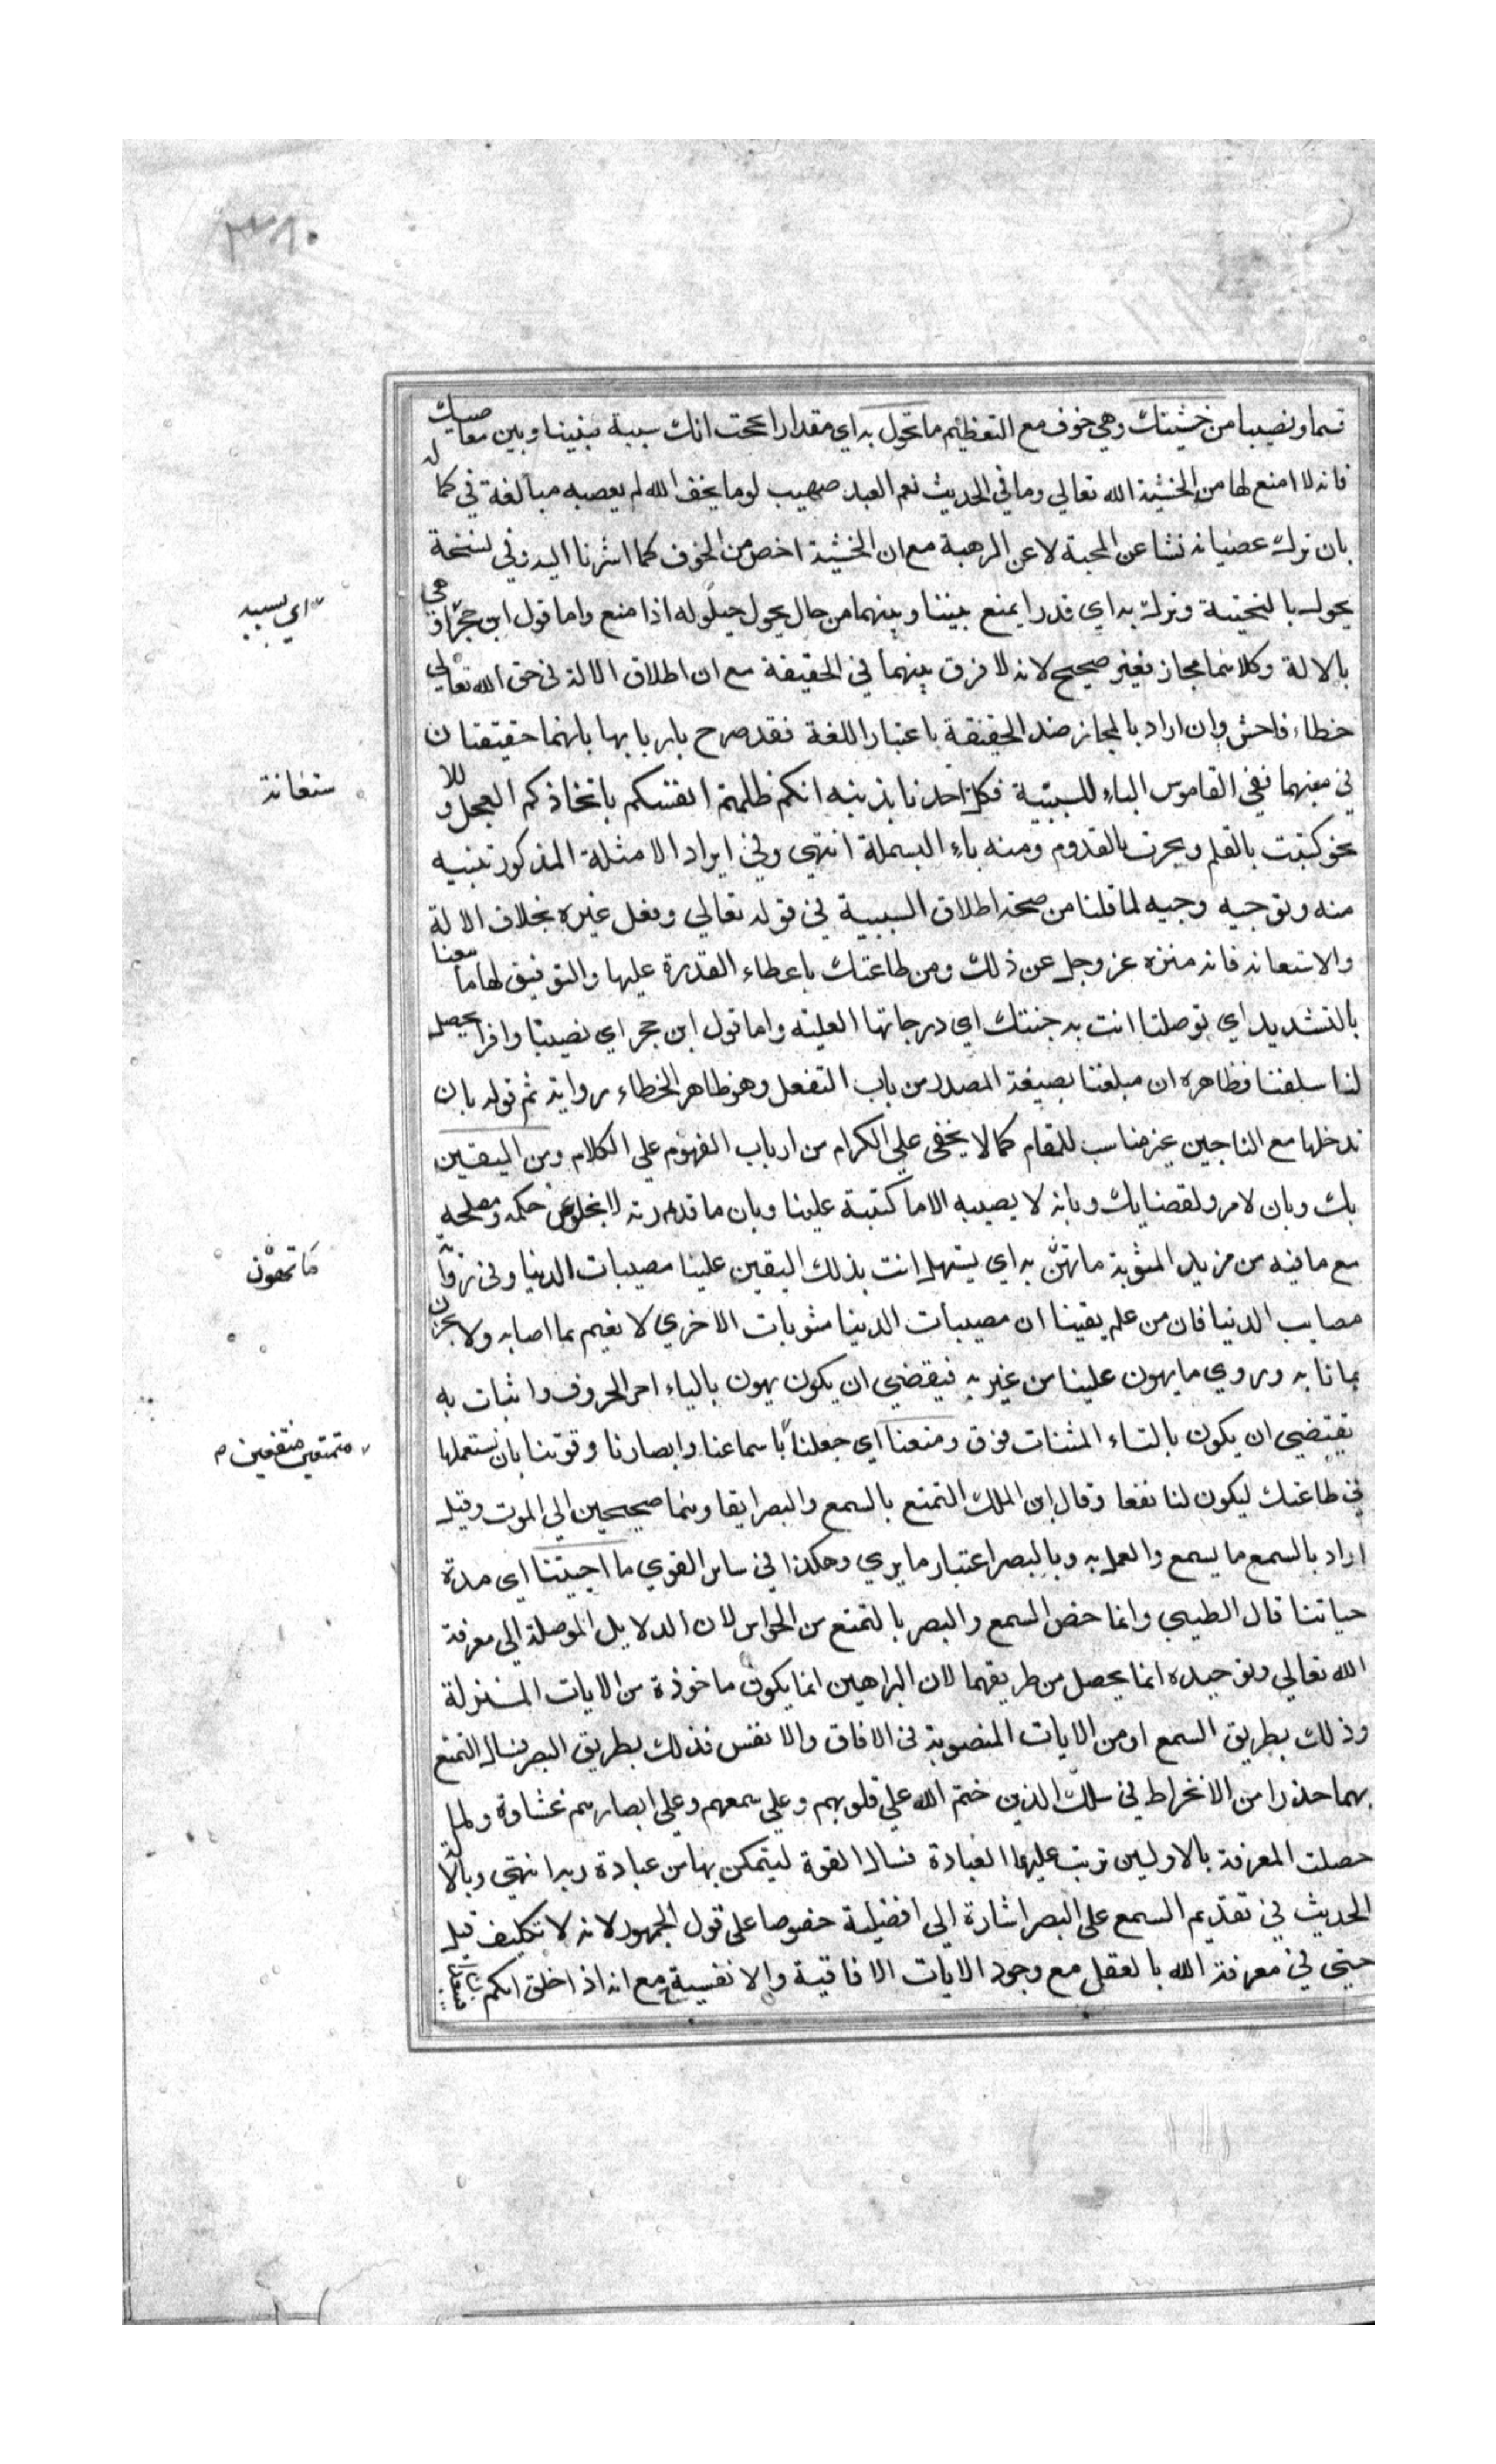 قسما ونصيبا من خشيتك وهي خوف مع التعظيم ما تحول به اي مقدارا يحجب انك سببه بيننا وبين معاصيك
فانه لا امنع لها من الخشية الله تعالي وما في الحديث نعم العبد صهيب لو ما يخف الله لم يعصه مبالغة في كماله
بان ترك عصيانه نشا عن المحبة لا عن الرهبة مع ان الخشية اخص من الخوف كما اشرنا اليه وفي نسخة
يحول بالتحتية وترك به اي قدرا يمنع بيننا وبينهما من حال يحول حيلوله اذا منع واما قول ابن حجر او هي
بالالة وكلاهما مجاز فغير صحيح لانه لا فرق بينهما في الحقيقة مع ان اطلاق الالة في حق الله تعالي
خطاء فاحش وان اراد بالمجاز ضد الحقيقة باعتبار اللغة فقد صرح باربابها بانهما حقيقتان
في معنيهما ففي القاموس الباء للسببية فكلا اخذنا بذنبه انكم ظلمتم انفسكم باتخاذكم العجل وللا
نحو كتبت بالقلم ونجرت بالقدوم ومنه باء البسملة انتهى وفي ايراد الامثلة المذكورة تنبيه
منه وتوجيه وجيه لما قلنا من صحة اطلاق السببية في قوله تعالي وفعل غيره بخلاف الالة
والاستعانه فانه منزه عز وجل عن ذلك ومن طاعتك باعطاء القدرة عليها والتوفيق لها ما تبلغنا
بالتشديد اي توصلنا انت به جنتك اي درجاتها العليه واما قول ابن حجر اي نصيبا وافرا يحصل
لنا سلفتنا فظاهره ان مبلغنا بصيغة المصدر من باب التفعل وهو ظاهر الخطاء رواية ثم قوله بان
تدخلها مع الناجين غير مناسب للمقام كما لا يخفى علي الكرام من ارباب الفهوم علي الكلام ومن اليقين
بك وبان لا مرد لقضايك وبانه لا يصيبه الا ما كتبته علينا وبان ما قدرته لا يخلو عن حكمه ومصلحة
مع ما فيه من مزيد المثوبة ما تهون به اي يسهل انت بذلك اليقين علينا مصيبات الدنيا وفي رواية
مصايب الدنيا فان من علم يقينا ان مصيبات الدنيا مثوبات الاخري لا يغتم بما اصابه ولا يحزن
بما نابه وروي ما يهون علينا من غير به فيقضي ان يكون يهون بالياء اخر الحروف واثبات به
يقتضي ان يكون بالتاء المثنات فوق ومتعنا اي جعلنا باسماعنا وابصارنا وقوتنا بان نستعملها
في طاعتك ليكون لنا نفعا وقال ابن الملك التمتع بالسمع والبصر ابقاوهما صحيحين الي الموت وقيل
اراد بالسمع ما يسمع والعمل به وبالبصر اعتبار ما يري وهكذا في ساير القوي ما احييتنا اي مدة
حياتنا قال الطيبي وانما خص السمع والبصر بالتمتع من الحواس لان الدلايل الموصلة الي معرفة
الله تعالي وتوحيده انما يحصل من طريقهما لان البراهين انما يكون ماخوذة من الايات المنزلة
وذلك بطريق السمع او من الايات المنصوبة في الافاق والانفس فذلك بطريق البصر فسال التمتع
بهما حذرا من الانخراط في سلك الذين ختم الله علي قلوبهم وعلي سمعهم وعلي ابصارهم غشاوة ولما
حصلت المعرفة بالاولين ترتب عليها العبادة فسال القوة ليتمكن بها من عبادة ربه انتهي
الحديث في تقديم السمع علي البصر اشارة الي افضلية خصوصا علي قول الجمهور لانه لا تكليف قبل
حتي في معرفة الله بالعقل مع وجود الايات الافاقية والانفسية مع انه اذا خلق
اي بسببه
ستعانة
ما تهون
متمتعين منتفعين م